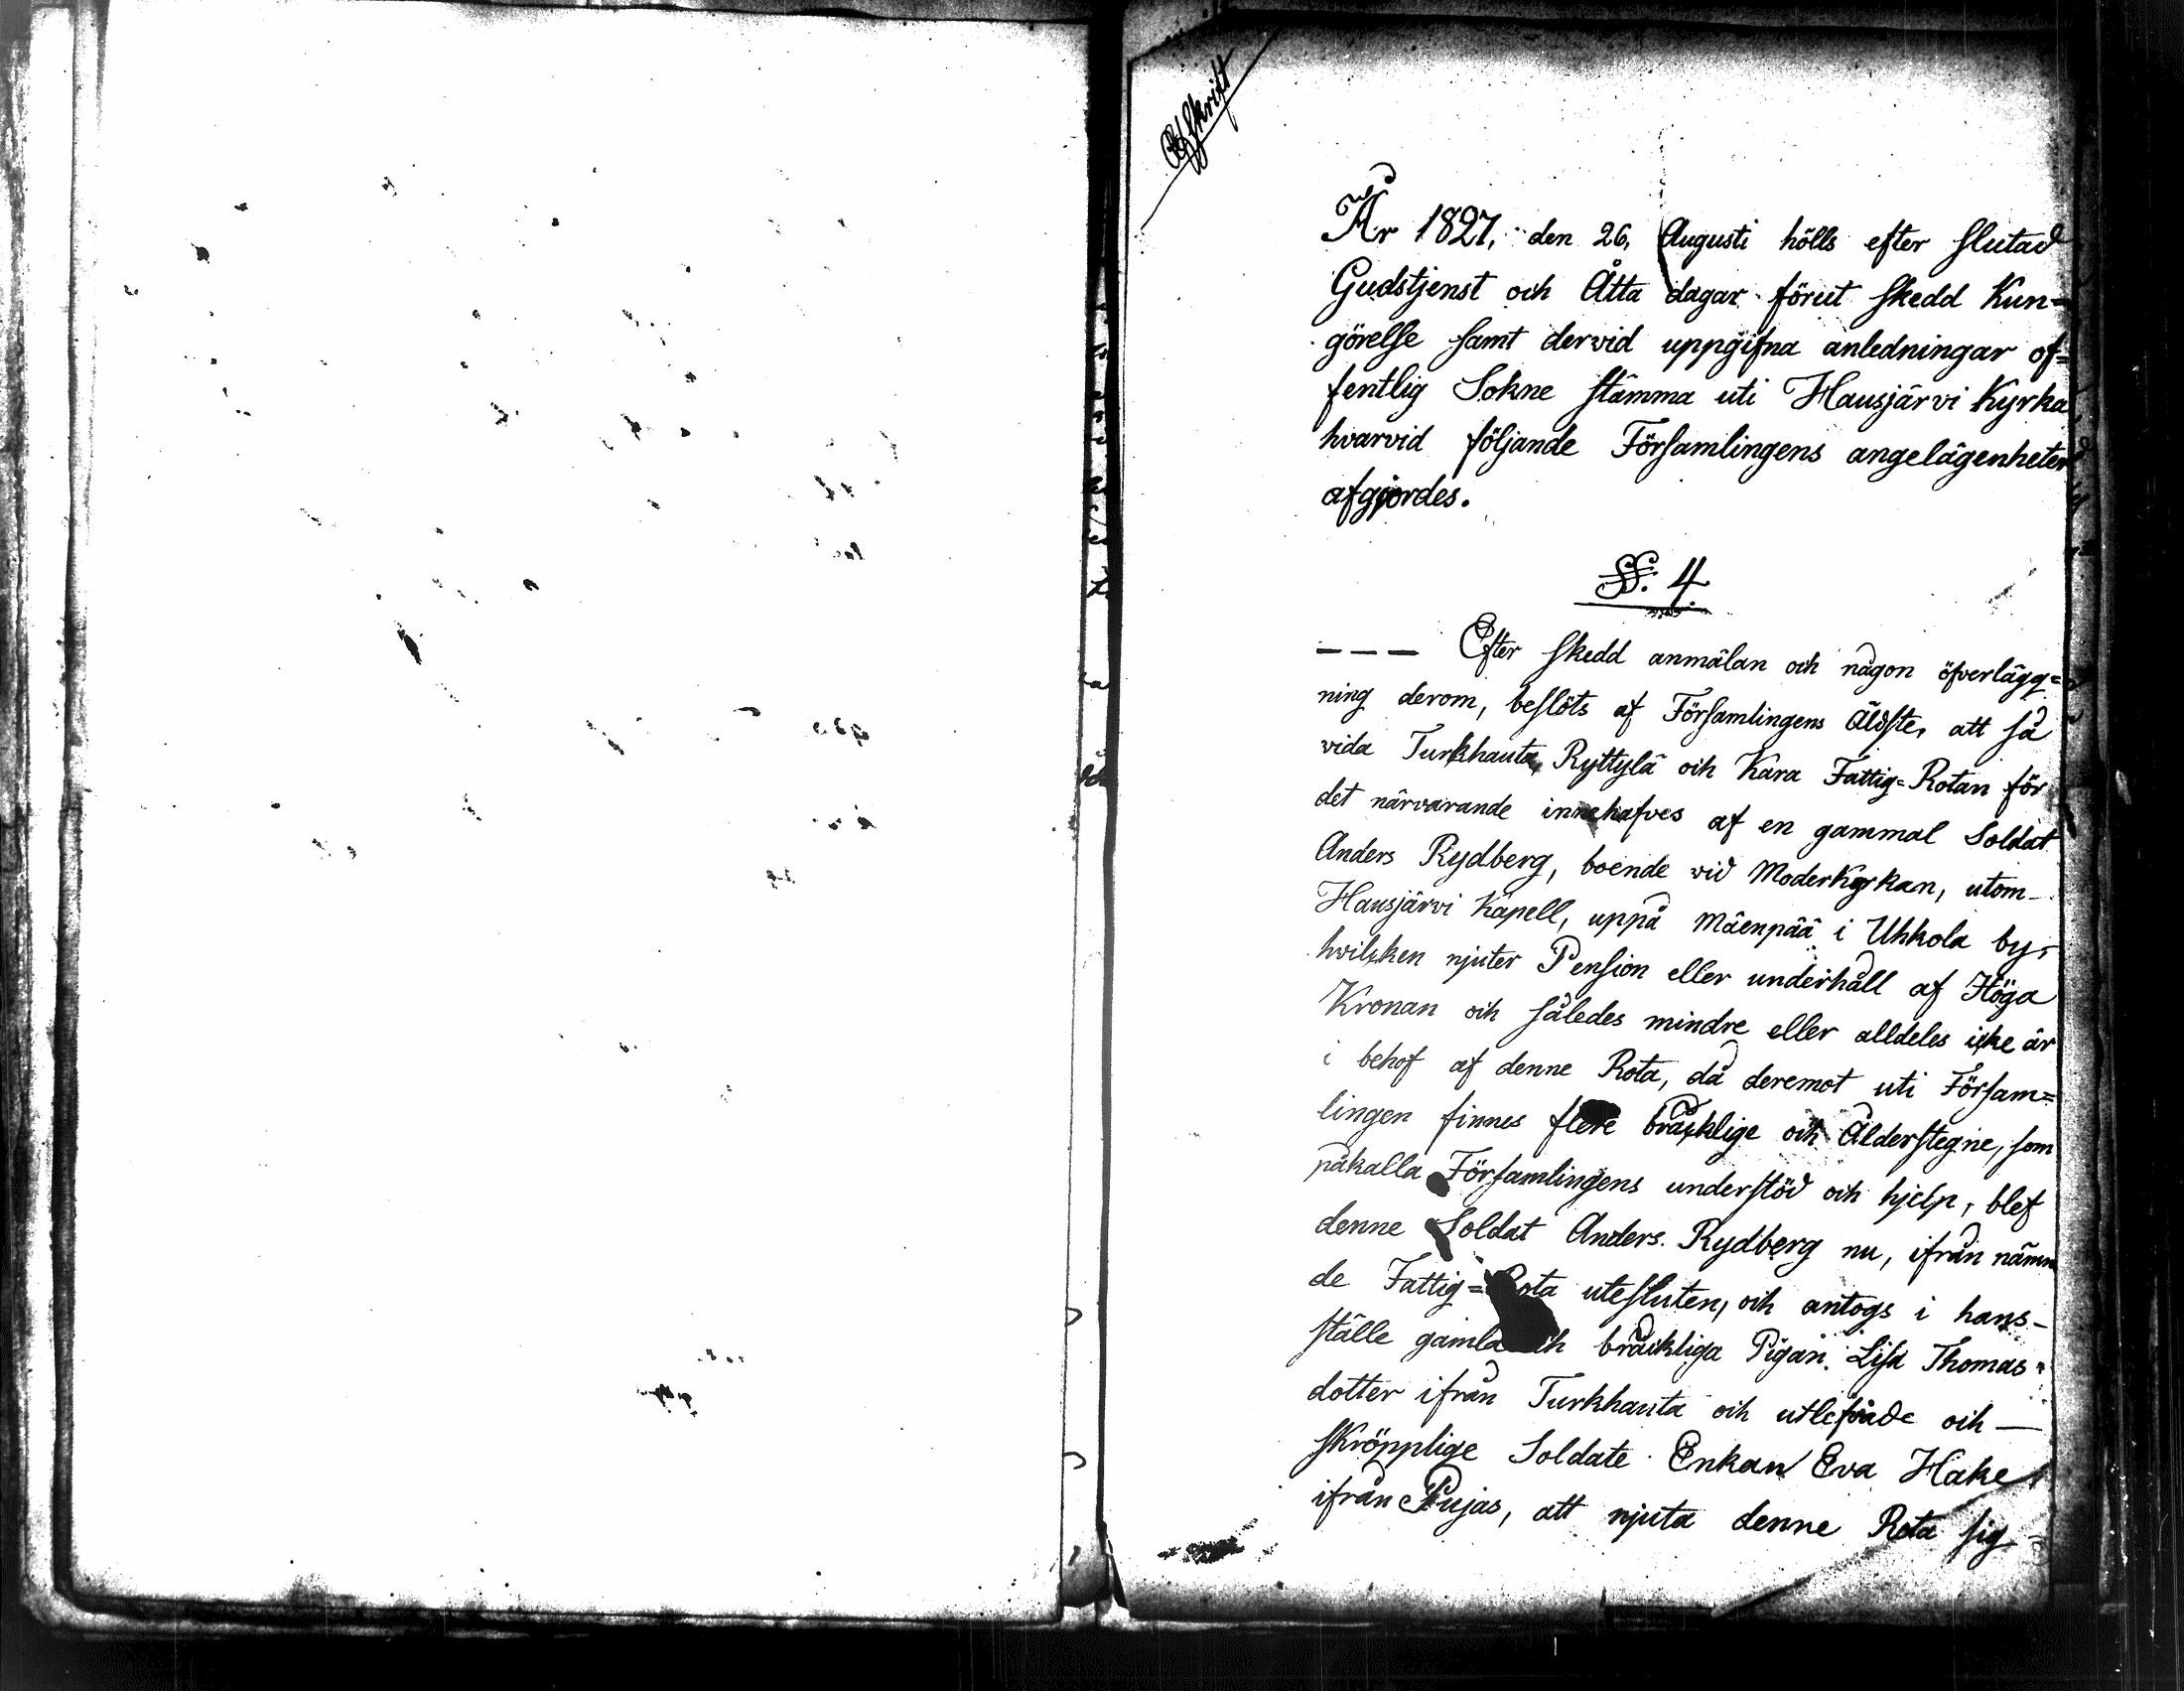 Afskrift
År 1827, den 26, Augusti hölls efter slutad
Gudstjenst och Åtta dagar förut skedd Kun=
görelse samt dervid uppgifna anledningar of=
fentlig Sokne stämma uti Hausjärvi Kyrka,
hvarvid följande Församlingens angelägenheter
afgjordes.
§. 4.
--- Efter skedd anmälan och någon öfverlägg=
ning derom, beslöts af Församlingens Äldste, att så
vida Turkhauta, Ryttylä och Kara Fattig=Rotan för
det närvarande innehafves af en gammal Soldat
Anders Rydberg, boende vid Moderkyrkan, utom
Hausjärvi Kapell, uppå Mäenpää i Uhkola by,
hvilcken njuter Pension eller underhåll af Höga
Kronan och således mindre eller alldeles icke är
i behof af denne Rota, då deremot uti Försam=
lingen finnes flere bräcklige och Ålderstegne, som
påkalla Församlingens understöd och hjelp, blef
denne Soldat Anders Rydberg nu, ifrån nämn
de Fattig=Rota utesluten, och antogs i hans
ställe gamla och bräckliga Pigan Lisa Thomas=
dotter ifrån Turkhauta och utlefvade och
skröpplige Soldate Enkan Eva Hake
ifrån Pujas, att njuta denne Rota sig